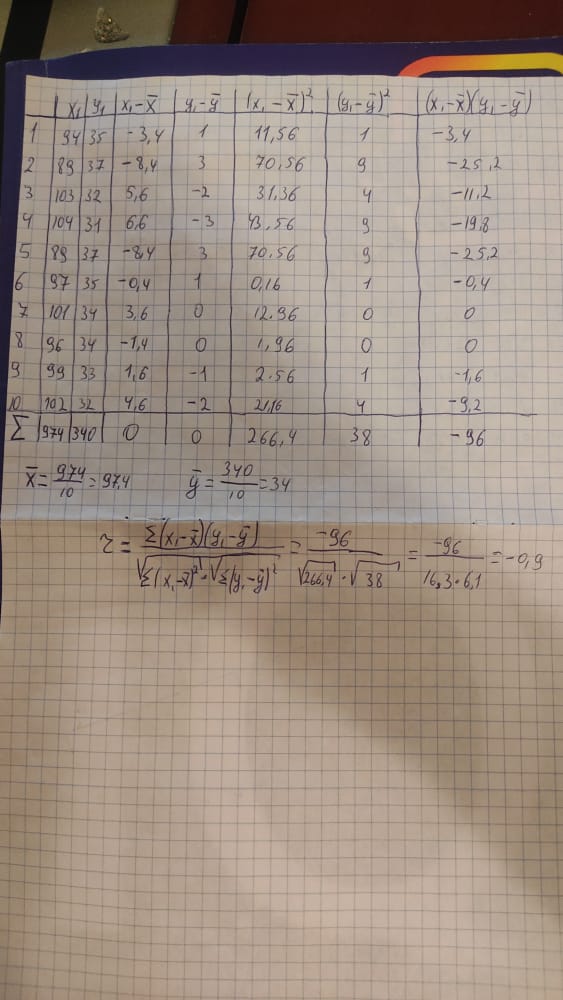 x₁ y₁ x₁-x̄ y₁-ȳ (x₁-x̄)² (y₁-ȳ)² (x₁-x̄)(y₁-ȳ)
1 94 35 -3,4 1 11,56 1 -3,4
2 89 37 -8,4 3 70,56 9 -25,2
3 103 32 5,6 -2 31,36 4 -11,2
4 104 31 6,6 -3 43,56 9 -19,8
5 89 37 -8,4 3 70,56 9 -25,2
6 97 35 -0,4 1 0,16 1 -0,4
7 101 34 3,6 0 12.96 0 0
8 96 34 -1,4 0 1,96 0 0
9 99 33 1,6 -1 2.56 1 -1,6
10 102 32 4,6 -2 21,16 4 -9,2
Σ 974 340 0 0 266,4 38 -96
x̄ = 974/10 = 97,4 ȳ = 340/10 = 34
r = Σ(x₁-x̄)(y₁-ȳ) / √Σ(x₁-x̄)² · √Σ(y₁-ȳ)² = -96 / √266,4 · √38 = -96 / 16,3 · 6,1 = -0,9